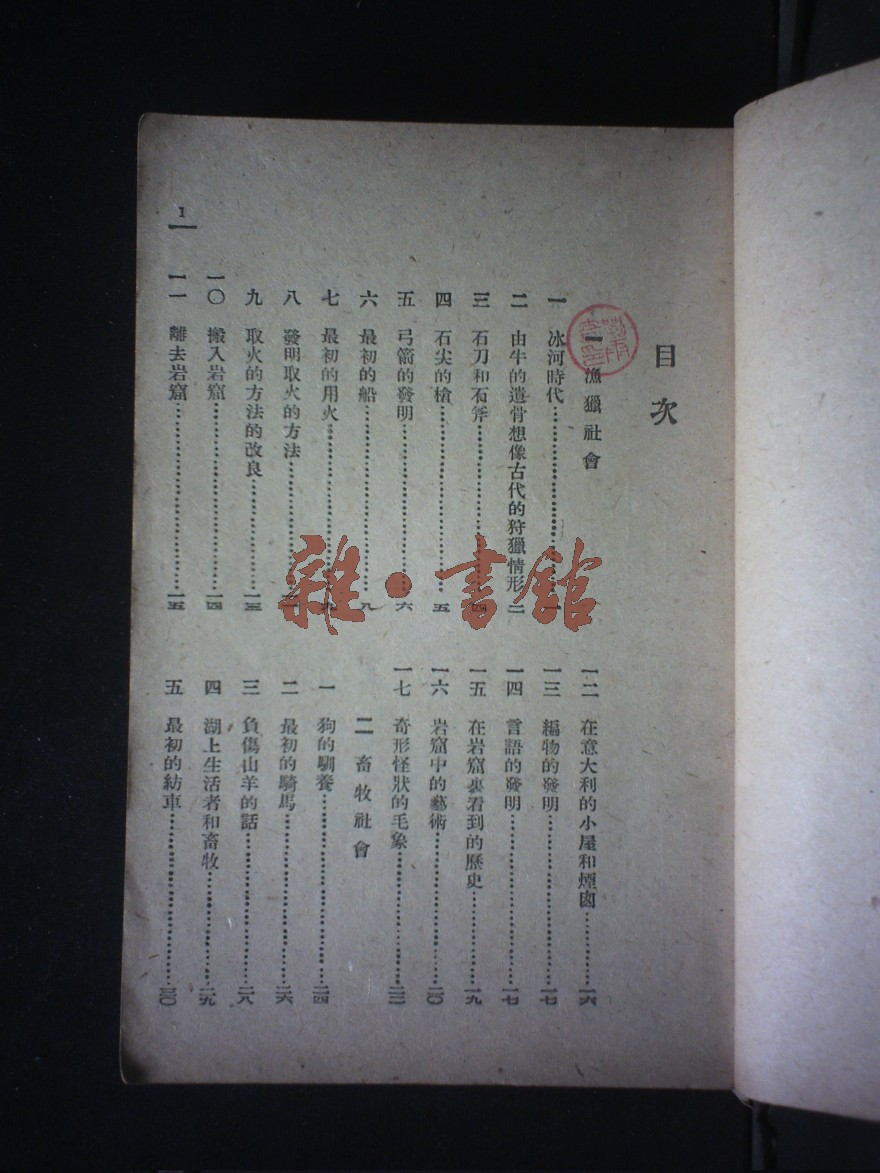 目次
一 漁獵社會
一 冰河時代 一
二 由牛的遺骨想像古代的狩獵情形 二
三 石刀和石斧 四
四 石尖的槍 五
五 弓箭的發明 六
六 最初的船 八
七 最初的用火 九
八 發明取火的方法
九 取火的方法的改良 一三
一〇 搬入岩窟 一四
一一 離去岩窟 一五
一二 在意大利的小屋和煙囪 一六
一三 編物的發明 一七
一四 言語的發明 一七
一五 在岩窟裏看到的歷史 一九
一六 岩窟中的藝術 二〇
一七 奇形怪狀的毛象
二 畜牧社會
一 狗的馴養 二四
二 最初的騎馬 二六
三 負傷山羊的話 二八
四 湖上生活者和畜牧 二九
五 最初的紡車 三〇
1
雜·書館